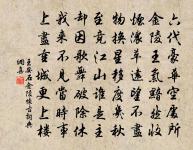 六代豪華空處所
金陵王氣黯然收
煙濃草遠望不盡
物換星移度幾秋
至竟江山誰是主
卻因歌舞破除休
我來不見當時事
上盡重城更上樓
王安石金陵懷古詞典
網集